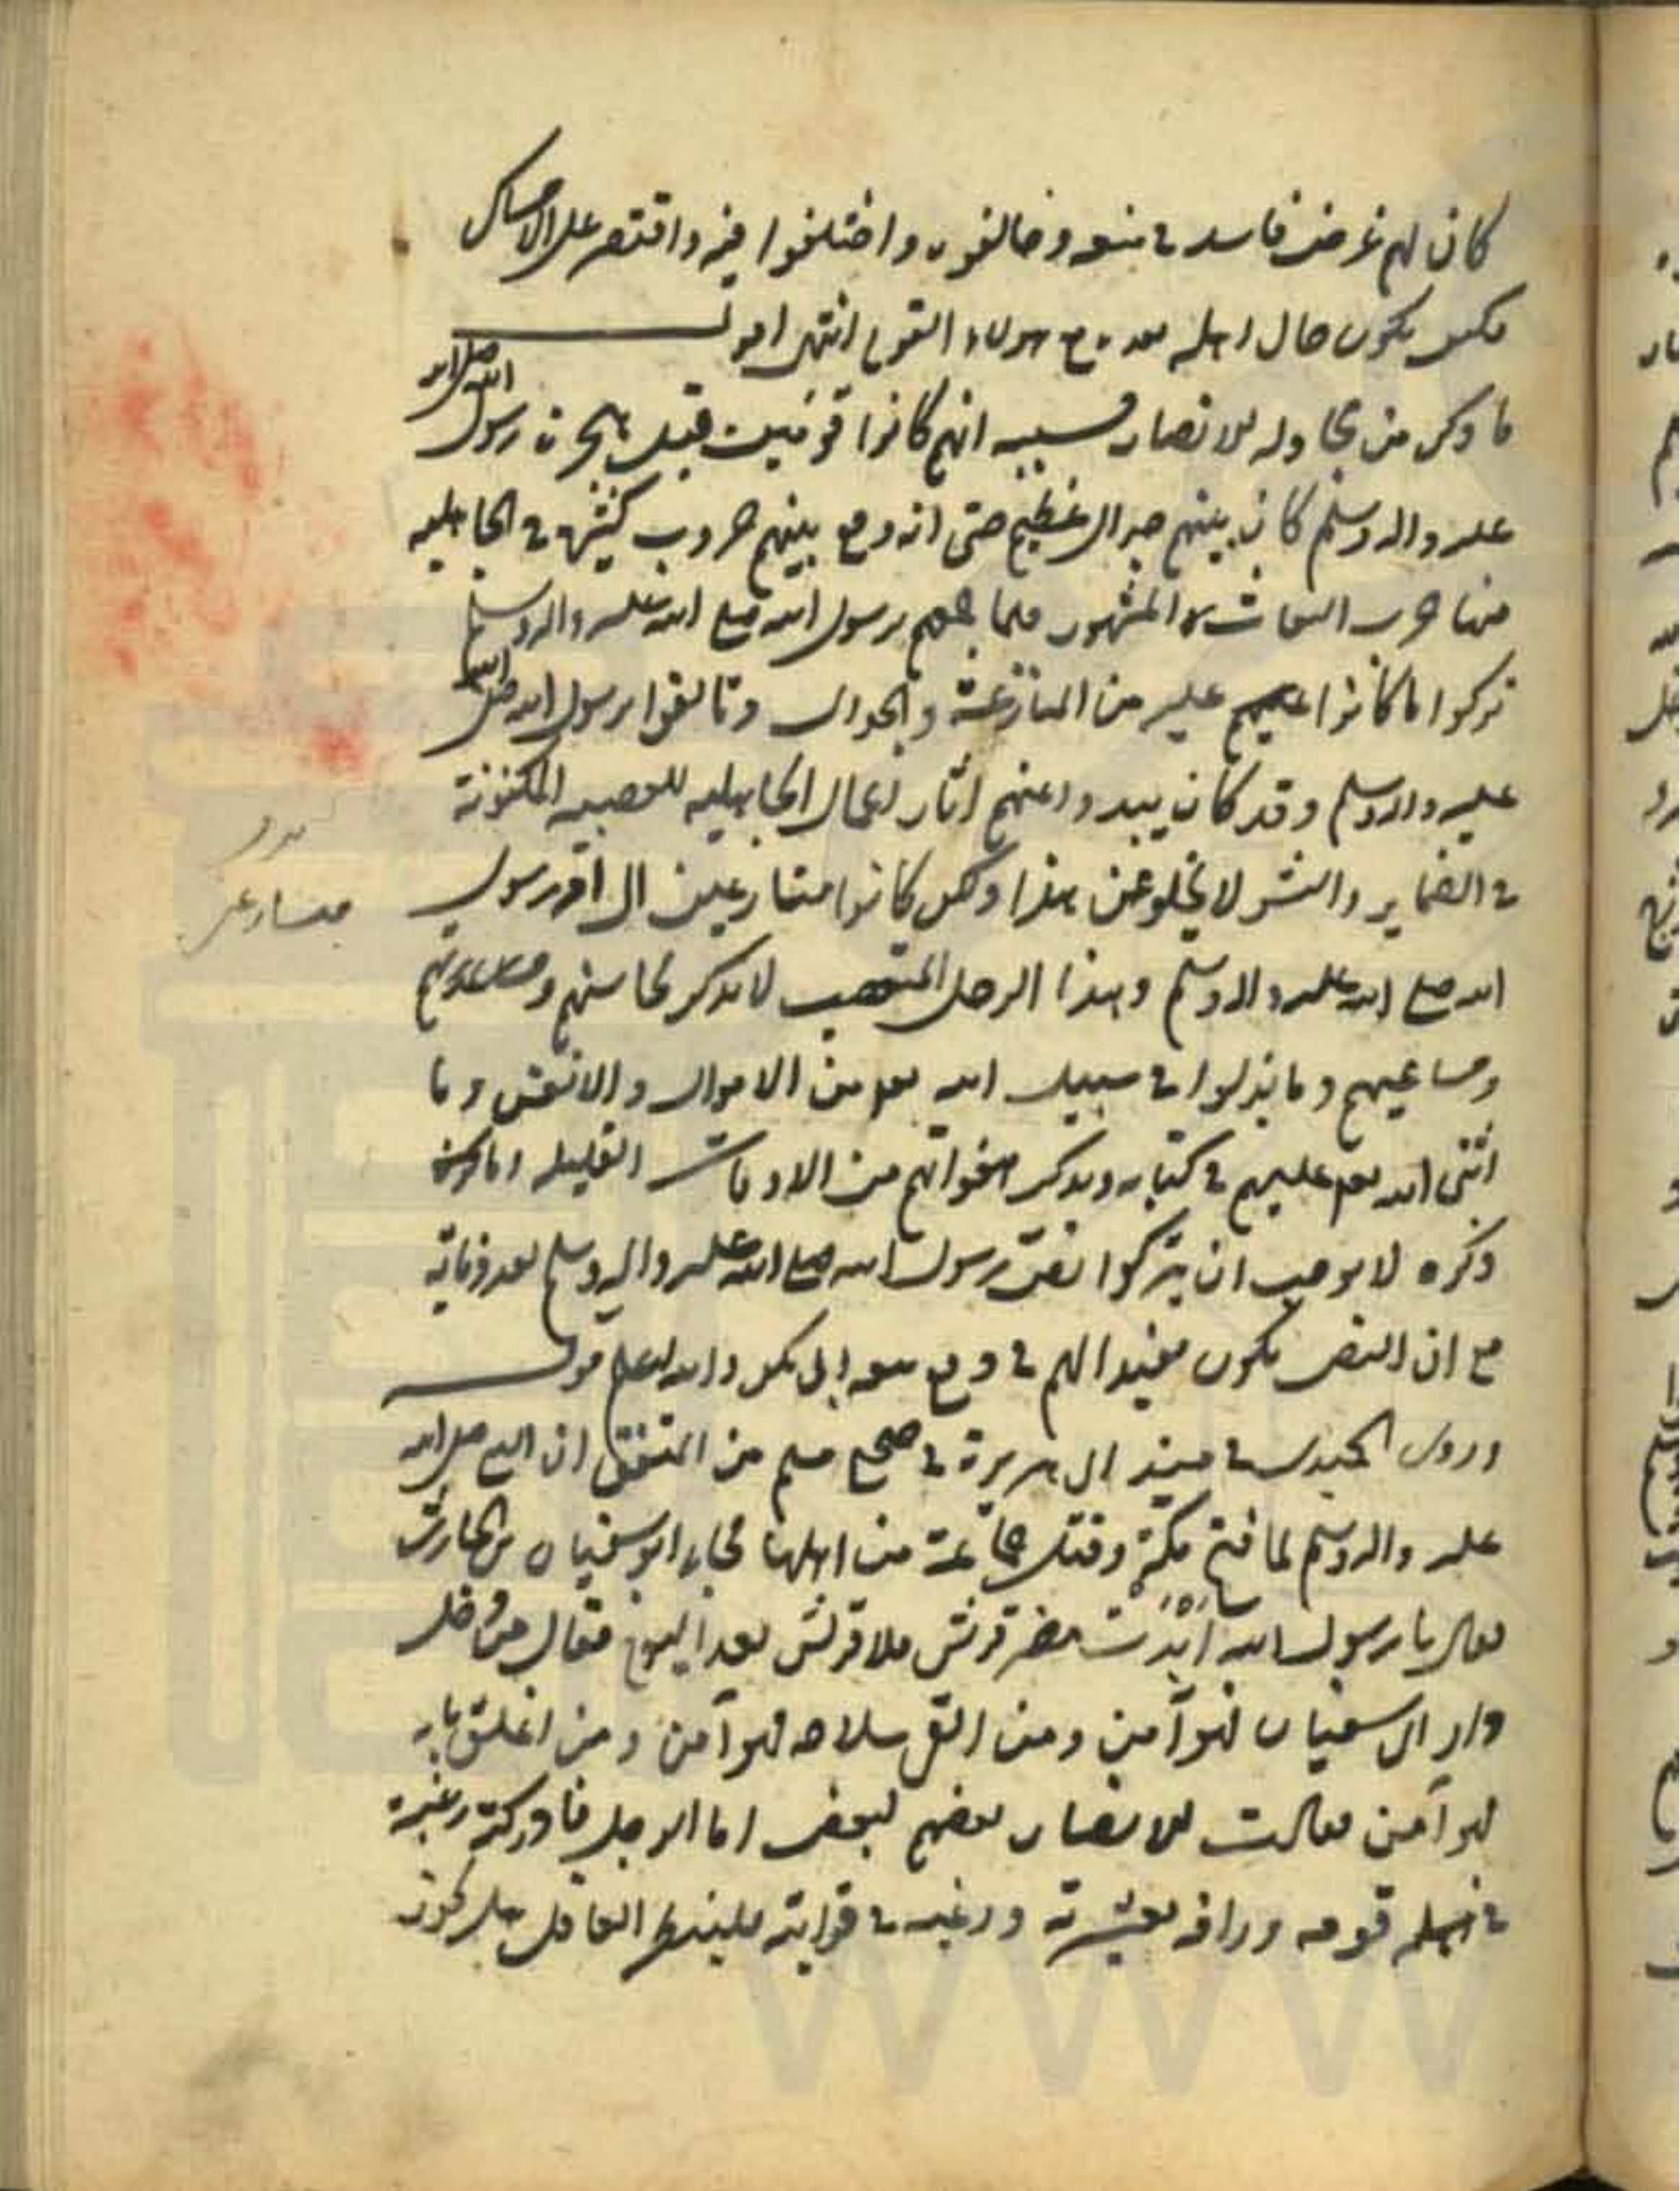 كان لهم غرض فاسد في منعه وخالفوه واختلفوا فيه واقتصر على الامساك
فكيف يكون حال اهله بعده مع هولاء القوم انتهى اقول
ما ذكر من مجادله الانصار فسببه انهم كانوا قوميت قبل هجرة رسول الله صلى الله
عليه واله وسلم كان بينهم جدال عظيم حتى انه وقع بينهم حروب كثيرة في الجاهليه
منها حرب البعاث المشهور فلما جمعهم رسول الله صلع الله عليه واله وسلم
تركوا ما كانوا عليه من المنازعة والجدال وتالفوا برسول الله صلى الله
عليه واله وسلم وقد كان يبدوا عنهم اثار اعمال الجاهليه للعصبيه المكنونة
في الضماير والبشر لا يخلو عن هذا ولكن كانوا متسارعين الى امر رسول
الله صلع الله عليه واله وسلم وهذا الرجل المتعصب لا يذكر محاسنهم و
ومساعيهم وما بذلوا في سبيل الله تعم من الاموال والانفس وما
اثنى الله تعم عليهم في كتابه ويذكر من القليله وما
ذكره لا يوجب ان يتركوا نص رسول الله صلع الله عليه واله وسلم بعد وفاته
مع ان النص يكون مفيدا لهم في دفع بيعه ابى بكر والله اعلم قوله
وروى الحميدى في مسند ابى هريرة في صحيح مسلم من المتفق ان النبي صلى الله
عليه واله وسلم لما فتح مكة وقتل جماعة من اهلها فجاء ابو سفيان بن الحارث
فقال يا رسول الله ابيدت خضر قريش فلا قريش بعد اليوم فقال من دخل
دار ابى سفيان فهو آمن ومن القى سلاحه فهو آمن ومن اغلق بابه
فهو آمن فقالت الانصار بعضهم لبعض اما الرجل فادركته رغبة
في قومه ورافه بعشيرته ورغبه في قرابته فلينظر العاقل هل يكون